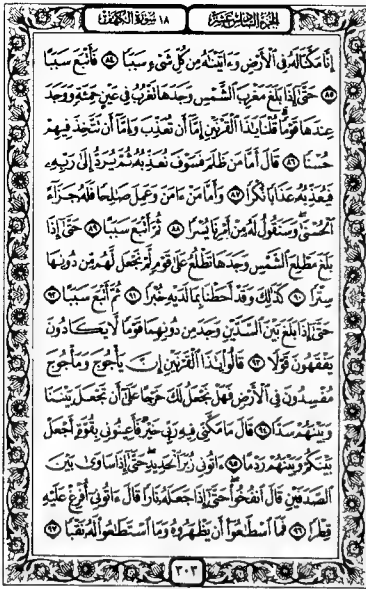 الجزء السادس عشر
١٨ سورة الكهف
إِنَّا مَكَّنَّا لَهُۥ فِي ٱلۡأَرۡضِ وَءَاتَيۡنَٰهُ مِن كُلِّ شَيۡءٖ سَبَبٗا ٨٤ فَأَتۡبَعَ سَبَبًا
٨٥ حَتَّىٰٓ إِذَا بَلَغَ مَغۡرِبَ ٱلشَّمۡسِ وَجَدَهَا تَغۡرُبُ فِي عَيۡنٍ حَمِئَةٖ وَوَجَدَ
عِندَهَا قَوۡمٗاۖ قُلۡنَا يَٰذَا ٱلۡقَرۡنَيۡنِ إِمَّآ أَن تُعَذِّبَ وَإِمَّآ أَن تَتَّخِذَ فِيهِمۡ
حُسۡنٗا ٨٦ قَالَ أَمَّا مَن ظَلَمَ فَسَوۡفَ نُعَذِّبُهُۥ ثُمَّ يُرَدُّ إِلَىٰ رَبِّهِۦ
فَيُعَذِّبُهُۥ عَذَابٗا نُّكۡرٗا ٨٧ وَأَمَّا مَنۡ ءَامَنَ وَعَمِلَ صَٰلِحٗا فَلَهُۥ جَزَآءً
ٱلۡحُسۡنَىٰۖ وَسَنَقُولُ لَهُۥ مِنۡ أَمۡرِنَا يُسۡرٗا ٨٨ ثُمَّ أَتۡبَعَ سَبَبًا ٨٩ حَتَّىٰٓ إِذَا
بَلَغَ مَطۡلِعَ ٱلشَّمۡسِ وَجَدَهَا تَطۡلُعُ عَلَىٰ قَوۡمٖ لَّمۡ نَجۡعَل لَّهُم مِّن دُونِهَا
سِتۡرٗا ٩٠ كَذَٰلِكَۖ وَقَدۡ أَحَطۡنَا بِمَا لَدَيۡهِ خُبۡرٗا ٩١ ثُمَّ أَتۡبَعَ سَبَبًا ٩٢
حَتَّىٰٓ إِذَا بَلَغَ بَيۡنَ ٱلسَّدَّيۡنِ وَجَدَ مِن دُونِهِمَا قَوۡمٗا لَّا يَكَادُونَ
يَفۡقَهُونَ قَوۡلٗا ٩٣ قَالُواْ يَٰذَا ٱلۡقَرۡنَيۡنِ إِنَّ يَأۡجُوجَ وَمَأۡجُوجَ
مُفۡسِدُونَ فِي ٱلۡأَرۡضِ فَهَلۡ نَجۡعَلُ لَكَ خَرۡجًا عَلَىٰٓ أَن تَجۡعَلَ بَيۡنَنَا
وَبَيۡنَهُمۡ سَدّٗا ٩٤ قَالَ مَا مَكَّنِّي فِيهِ رَبِّي خَيۡرٞ فَأَعِينُونِي بِقُوَّةٍ أَجۡعَلۡ
بَيۡنَكُمۡ وَبَيۡنَهُمۡ رَدۡمًا ٩٥ ءَاتُونِي زُبَرَ ٱلۡحَدِيدِۖ حَتَّىٰٓ إِذَا سَاوَىٰ بَيۡنَ
ٱلصَّدَفَيۡنِ قَالَ ٱنفُخُواْۖ حَتَّىٰٓ إِذَا جَعَلَهُۥ نَارٗا قَالَ ءَاتُونِيٓ أُفۡرِغۡ عَلَيۡهِ
قِطۡرٗا ٩٦ فَمَا ٱسۡطَٰعُوٓاْ أَن يَظۡهَرُوهُ وَمَا ٱسۡتَطَٰعُواْ لَهُۥ نَقۡبٗا ٩٧
٣٠٣